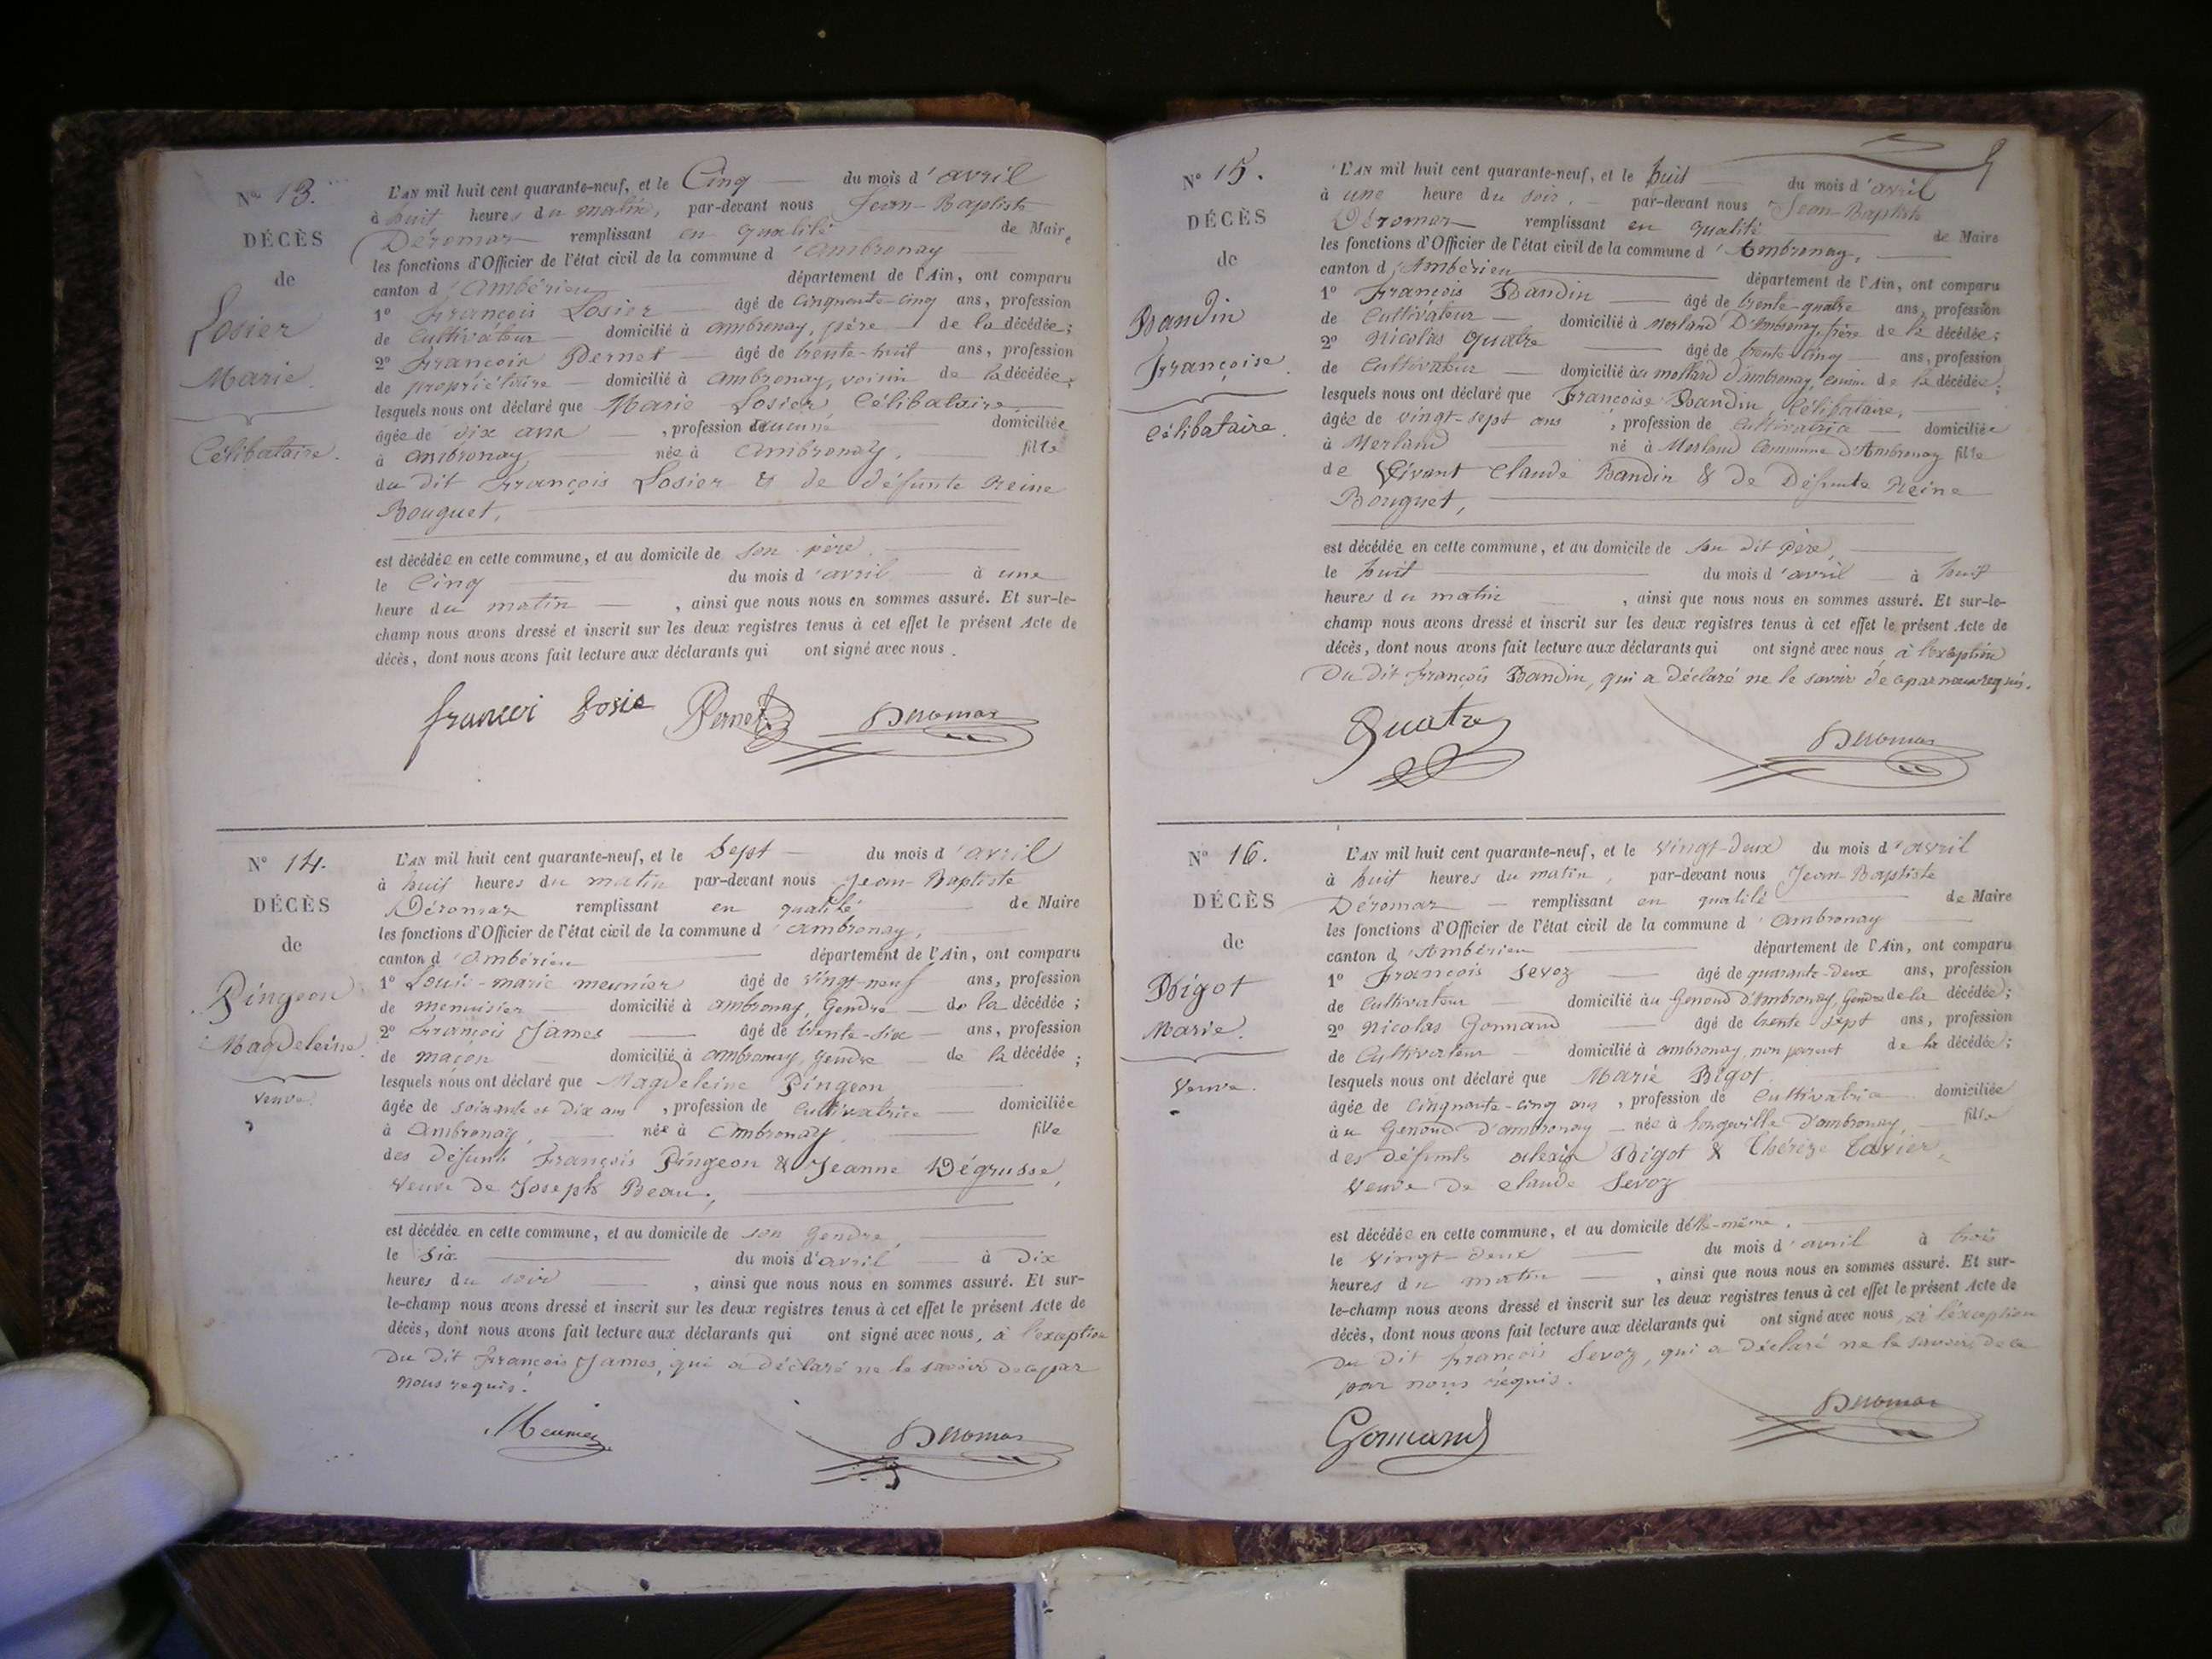 N° 13.
DÉCÈS
de
Losier
Marie.
Célibataire.
L'AN mil huit cent quarante-neuf, et le Cinq du mois d'avril
à huit heures du matin, par-devant nous Jean-Baptiste
Déromas remplissant en qualité de Maire
les fonctions d'Officier de l'état civil de la commune d'ambronay
canton d'ambérieu département de l'Ain, ont comparu
1° François Losier âgé de cinquante-cinq ans, profession
de cultivateur domicilié à ambronay, père de la décédée;
2° François Pernet âgé de trente-huit ans, profession
de propriétaire domicilié à ambronay, voisin de la décédée;
lesquels nous ont déclaré que Marie Losier, Célibataire
âgée de dix ans, profession d'aucune domiciliée
à ambronay née à ambronay, fille
du dit François Losier & de défunte Reine
Bouquet,
est décédée en cette commune, et au domicile de son père,
le Cinq du mois d'avril à une
heure du matin, ainsi que nous nous en sommes assuré. Et sur-le-
champ nous avons dressé et inscrit sur les deux registres tenus à cet effet le présent Acte de
décès, dont nous avons fait lecture aux déclarants qui ont signé avec nous.
françoi Losie Pernet Deromas
N° 14.
DÉCÈS
de
Pingeon
Magdeleine
Veuve.
L'AN mil huit cent quarante-neuf, et le Sept du mois d'avril
à huit heures du matin par-devant nous Jean-Baptiste
Déromas remplissant en qualité de Maire
les fonctions d'Officier de l'état civil de la commune d'ambronay,
canton d'ambérieu département de l'Ain, ont comparu
1° Louis-marie meunier âgé de vingt-neuf ans, profession
de menuisier domicilié à ambronay, Gendre de la décédée;
2° François James âgé de trente-six ans, profession
de maçon domicilié à ambronay, Gendre de la décédée;
lesquels nous ont déclaré que Magdeleine Pingeon
âgée de soixante et dix ans, profession de cultivatrice domiciliée
à ambronay, née à ambronay, fille
des défunts François Pingeon & Jeanne Dégrusse,
veuve de Joseph Beau,
est décédée en cette commune, et au domicile de son Gendre,
le Six du mois d'avril à Dix
heures du soir, ainsi que nous nous en sommes assuré. Et sur-
le-champ nous avons dressé et inscrit sur les deux registres tenus à cet effet le présent Acte de
décès, dont nous avons fait lecture aux déclarants qui ont signé avec nous, à l'exception
du dit François James, qui a déclaré ne le savoir de ce par
nous requis.
Meunier Deromas
N° 15.
DÉCÈS
de
Bandin
Françoise.
Célibataire.
L'AN mil huit cent quarante-neuf, et le huit du mois d'avril
à une heure du soir, par-devant nous Jean-Baptiste
Déromas remplissant en qualité de Maire
les fonctions d'Officier de l'état civil de la commune d'Ambronay,
canton d'Ambérieu département de l'Ain, ont comparu
1° François Bandin âgé de trente-quatre ans, profession
de cultivateur domicilié à Merland D'Ambronay, frère de la décédée;
2° Nicolas Quatre âgé de trente-cinq ans, profession
de cultivateur domicilié au mollard d'ambronay, cousin de la décédée;
lesquels nous ont déclaré que Françoise Bandin, Célibataire,
âgée de vingt-sept ans, profession de cultivatrice domiciliée
à Merland né à Merland Commune d'Ambronay fille
de vivant Claude Bandin & de Défunte Reine
Bouquet,
est décédée en cette commune, et au domicile de son dit père,
le huit du mois d'avril à huit
heures du matin, ainsi que nous nous en sommes assuré. Et sur-le-
champ nous avons dressé et inscrit sur les deux registres tenus à cet effet le présent Acte de
décès, dont nous avons fait lecture aux déclarants qui ont signé avec nous, à l'exception
du dit François Bandin, qui a déclaré ne le savoir de ce par nous requis.
Quatre Deromas
N° 16.
DÉCÈS
de
Bigot
Marie.
Veuve.
L'AN mil huit cent quarante-neuf, et le vingt-deux du mois d'avril
à huit heures du matin, par-devant nous Jean-Baptiste
Déromas remplissant en qualité de Maire
les fonctions d'Officier de l'état civil de la commune d'ambronay
canton d'Ambérieu département de l'Ain, ont comparu
1° François Sevoz âgé de quarante-deux ans, profession
de cultivateur domicilié au Genoud d'Ambronay, Gendre de la décédée;
2° Nicolas Gonnand âgé de trente sept ans, profession
de Cultivateur domicilié à ambronay, non parent de la décédée;
lesquels nous ont déclaré que Marie Bigot
âgée de cinquante-cinq ans, profession de cultivatrice domiciliée
au Genoud d'ambronay née à longeville d'ambronay, fille
des défunts alexis Bigot & Thérèze Tavier,
veuve de Claude Sevoz
est décédée en cette commune, et au domicile d'elle-même,
le vingt-deux du mois d'avril à trois
heures du matin, ainsi que nous nous en sommes assuré. Et sur-
le-champ nous avons dressé et inscrit sur les deux registres tenus à cet effet le présent Acte de
décès, dont nous avons fait lecture aux déclarants qui ont signé avec nous, à l'exception
du dit François Sevoz, qui a déclaré ne le savoir, de ce
par nous requis.
Gonnand Deromas